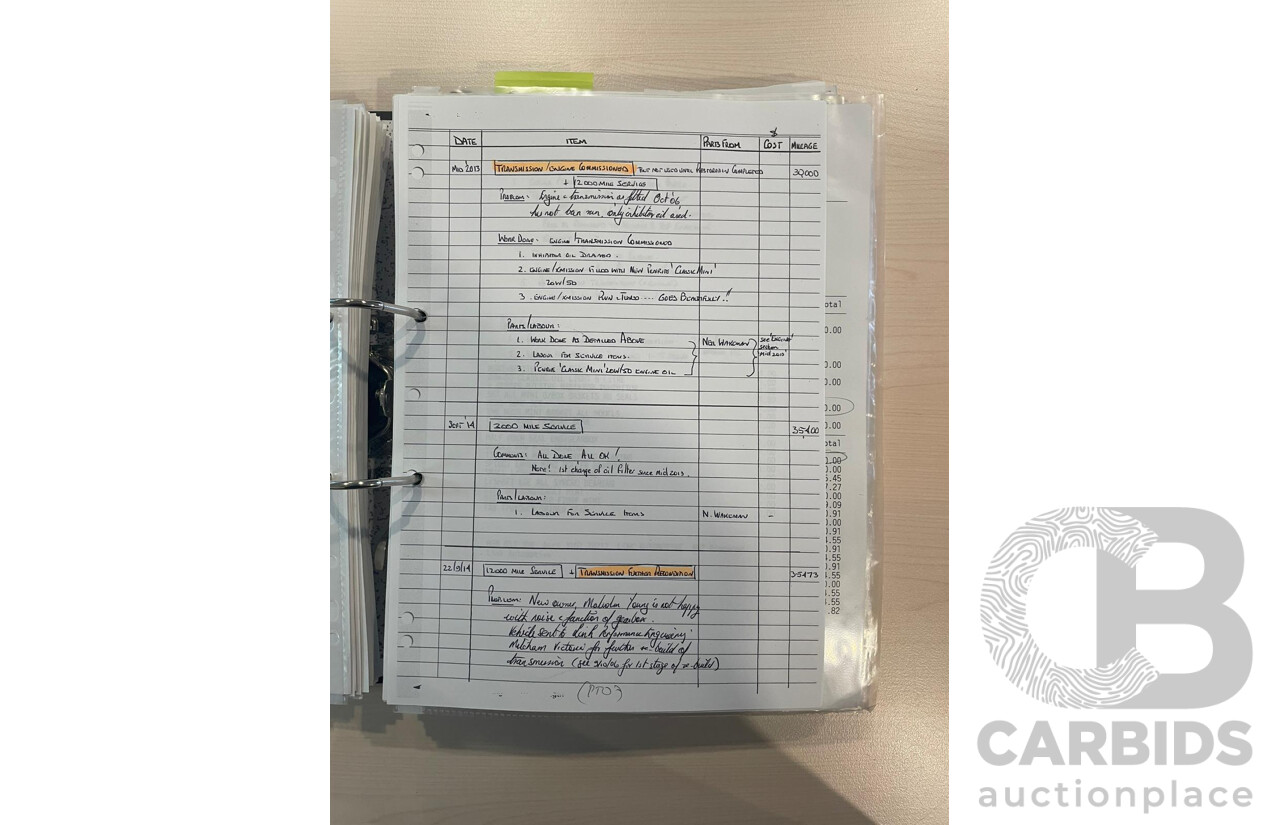 $
DATE ITEM PARTS FROM COST MILEAGE
MID 2013 TRANSMISSION/ENGINE COMMISSIONED BUT NOT USED UNTIL RESTORATION COMPLETED 32,000
+ 2000 MILE SERVICE
PROBLEM: Engine + transmission as fitted Oct '06
has not been run, only inhibitor oil used.
WORK DONE: ENGINE/TRANSMISSION COMMISSIONED
1. INHIBITOR OIL DRAINED.
2. ENGINE/XMISSION FILLED WITH NEW PENRITE 'CLASSIC MINI'
20W/50
3. ENGINE/XMISSION RUN & TUNED ... GOES BEAUTIFULLY!!
PARTS/LABOUR:
1. WORK DONE AS DETAILED ABOVE NEIL WAKEMAN see 'ENGINE' section Mid 2013'
2. LABOUR FOR SERVICE ITEMS.
3. PENRITE 'CLASSIC MINI' 20W/50 ENGINE OIL
'14 2000 MILE SERVICE 35,400
COMMENTS: ALL DONE ALL OK!
NOTE! 1st change of oil filter since Mid 2013.
PARTS/LABOUR:
1. LABOUR FOR SERVICE ITEMS N. WAKEMAN -
22/9/14 12000 MILE SERVICE + TRANSMISSION FURTHER RECONDITION 35473
PROBLEM: New owner, Malcolm Young is not happy
with noise & function of gearbox.
Vehicle sent to 'Link Performance Engineering'
Mitcham Victoria for further re-build of
transmission (see for 1st stage of re-build)
(PTO)
otal
0.00
0.00
0.00
0.00
0.00
otal
0.00
0.00
5.45
7.27
0.00
9.09
0.91
0.00
0.91
4.55
0.91
0.91
4.55
0.00
4.55
4.55
.82
CB
CARBIDS
auctionplace